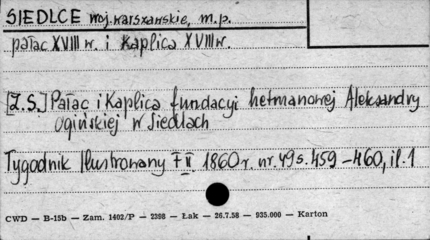 SIEDLCE woj. warszawskie, m.p.
pałac XVIII w. i kaplica XVIII w.
[Z.S.] Pałac i Kaplica fundacyi hetmanowej Aleksandry
Ogińskiej w Siedlcach
Tygodnik Ilustrowany T II 1860 r. nr. 49 s. 459-460, il. 1
CWD — B-15b — Zam. 1402/P — 2398 — Łak — 26.7.58 — 935.000 — Karton